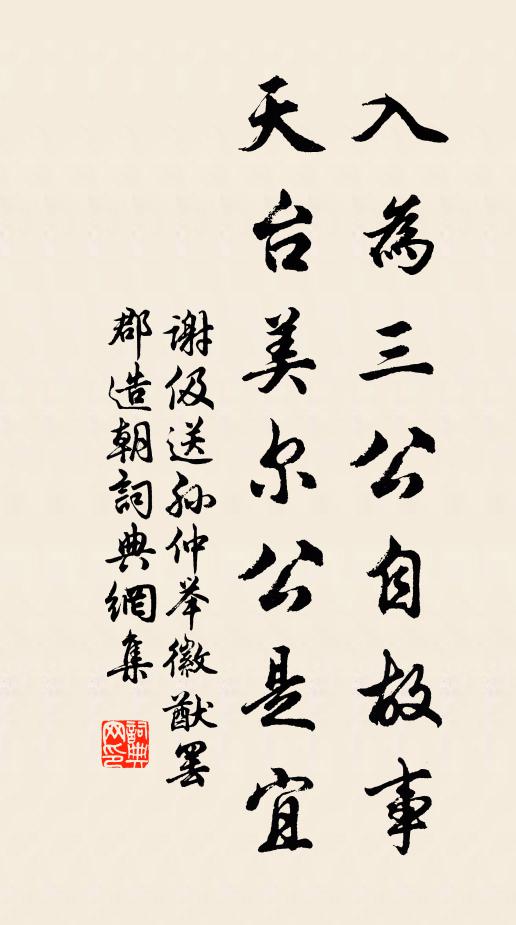 入為三公自故事
天台美尔公是宜
谢伋送孙仲举徽猷罢
郡造朝詞典網集
詞典